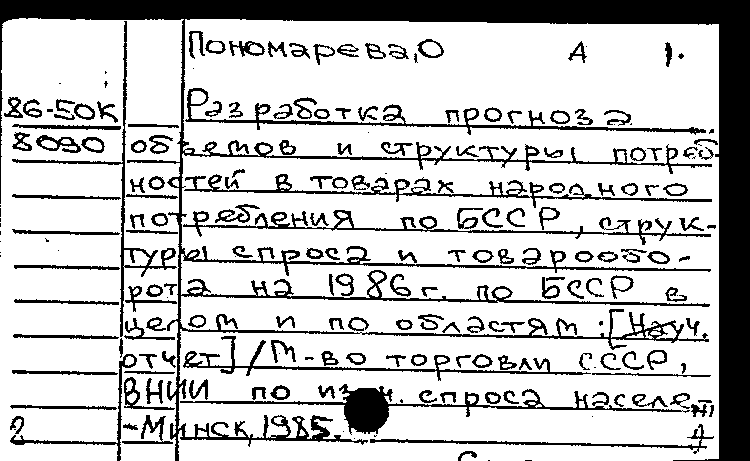 Пономарева, О А 1.
86-50К Разработка прогноза
8090 объемов и структуры потреб-
ностей в товарах народного
потребления по БССР, струк-
туры спроса и товарообо-
рота на 1986 г. по БССР в
целом и по областям : [Науч.
отчет] / М-во торговли СССР,
ВНИИ по спроса населе
2 -Минск, 1985.